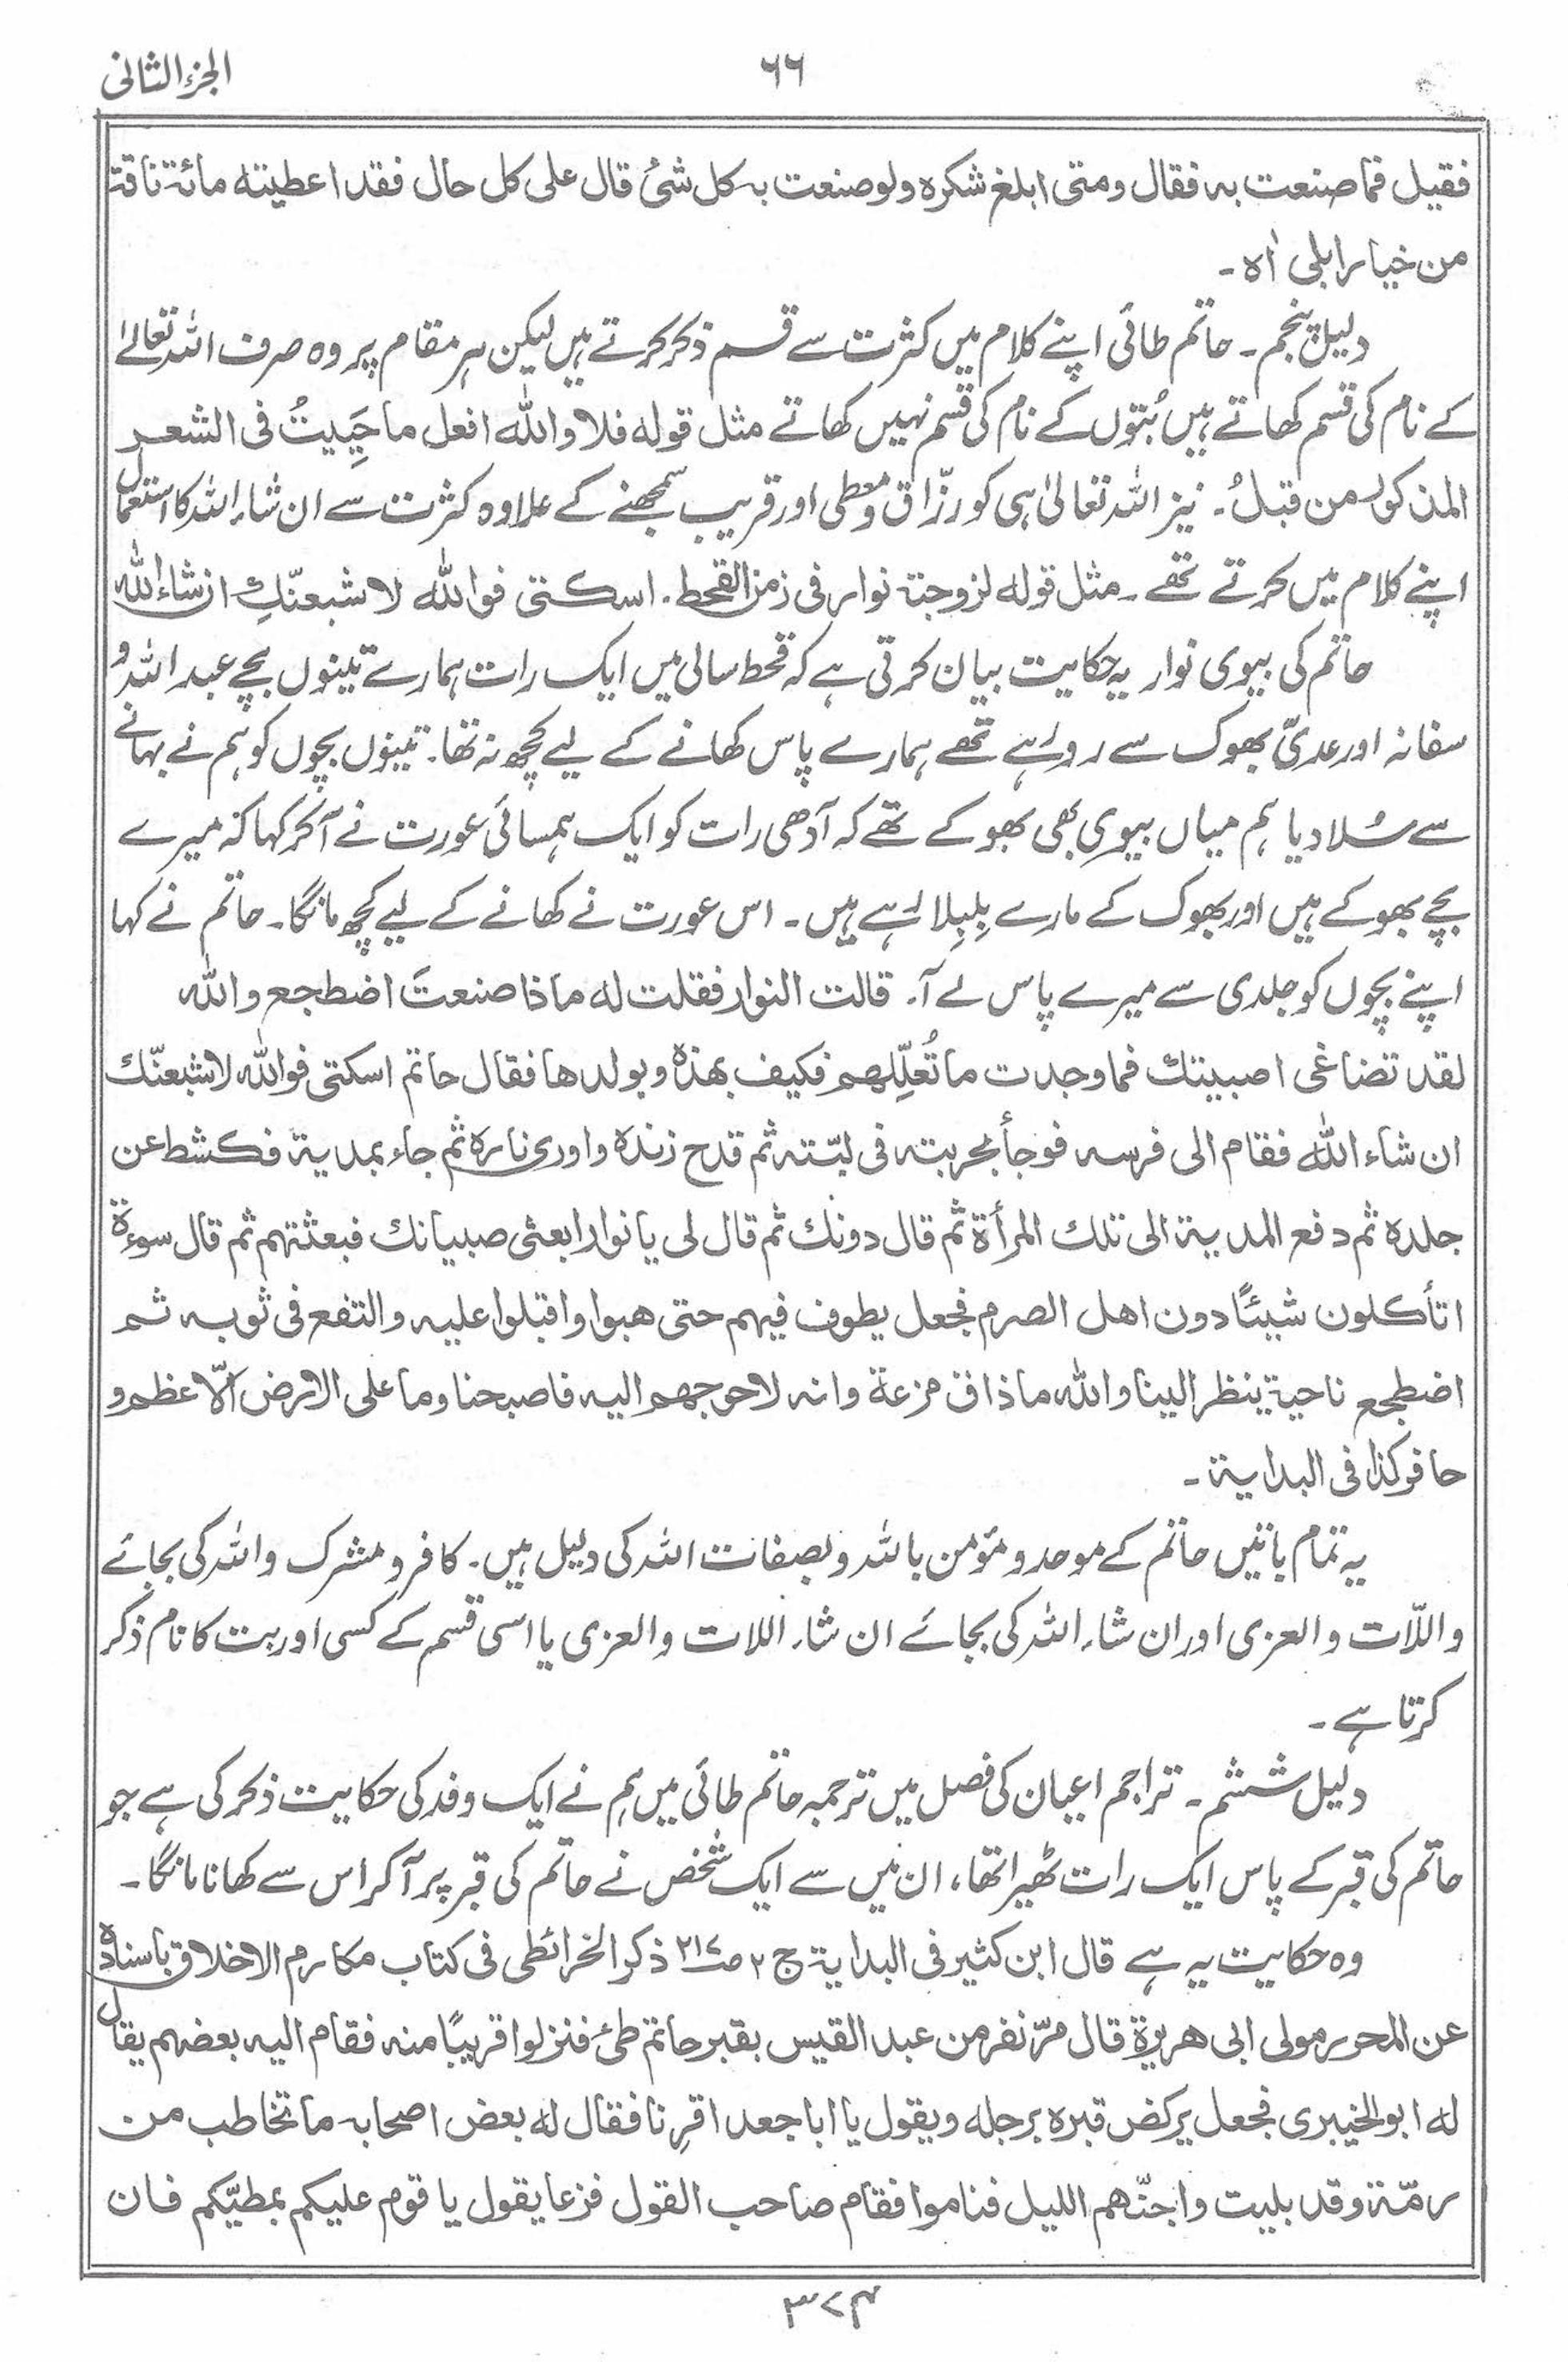 الجزء الثانی
٦٦
فقیل فما صنعت به فقال ومتی ابلغ شکره ولو صنعت به کل شیٔ قال علی کل حال فقد اعطیته مائة ناقة
من خیار ابلی اه ۔
دلیل پنجم ۔ حاتم طائی اپنے کلام میں کثرت سے قسم ذکر کرتے ہیں لیکن ہر مقام پر وہ صرف اللہ تعالےٰ
کے نام کی قسم کھاتے ہیں بُتوں کے نام کی قسم نہیں کھاتے مثل قوله فلا واللّٰه افعل ما حَیِیتُ فی الشعر
المذکور من قبلُ ۔ نیز اللہ تعالیٰ ہی کو رزّاق و معطی اور قریب سمجھنے کے علاوہ کثرت سے ان شاء اللہ کا استعمال
اپنے کلام میں کرتے تھے ۔ مثل قوله لزوجته نوار فی زمن القحط ۔ اسکتی فواللّٰه لاشبعنّكِ ان شاء اللّٰه
حاتم کی بیوی نوار یہ حکایت بیان کرتی ہے کہ قحط سالی میں ایک رات ہمارے تینوں بچے عبد اللہ و
سفانہ اور عدیّ بھوک سے رو رہے تھے ہمارے پاس کھانے کے لیے کچھ نہ تھا ۔ تینوں بچوں کو ہم نے بہانے
سے سُلا دیا ہم میاں بیوی بھی بھوکے تھے کہ آدھی رات کو ایک ہمسائی عورت نے آکر کہا کہ میرے
بچے بھوکے ہیں اور بھوک کے مارے بِلبِلا رہے ہیں ۔ اس عورت نے کھانے کے لیے کچھ مانگا ۔ حاتم نے کہا
اپنے بچوں کو جلدی سے میرے پاس لے آ ۔ قالت النوار فقلت له ماذا صنعتَ اضطجع واللّٰه
لقد تضاغی اصبیتك فما وجدت ما تُعلّلِهم فکیف بهذه وبولدها فقال حاتم اسکتی فواللّٰه لاشبعنّك
ان شاء اللّٰه فقام الی فرسه فوجأ بحربته فی لبّته ثم قدح زنده واوری ناره ثم جاء بمدیة فکشط عن
جلده ثم دفع المدیة الی تلك المرأة ثم قال دونك ثم قال لی یا نوار ابعثی صبیانك فبعثتهم ثم قال سوءة
اتأکلون شیئًا دون اهل الصرم فجعل یطوف فیهم حتی هبوا واقبلوا علیه والتفع فی ثوبه ثم
اضطجع ناحیة ینظر الینا واللّٰه ما ذاق مزعة وانه لاحوجهم الیه فاصبحنا وما علی الارض الّا عظم و
حافر کذا فی البدایة ۔
یہ تمام باتیں حاتم کے موحد و مؤمن باللہ و بصفات اللہ کی دلیل ہیں ۔ کافر و مشرک واللہ کی بجائے
واللّات والعزی اور ان شاء اللہ کی بجائے ان شاء اللات والعزی یا اسی قسم کے کسی اور بت کا نام ذکر
کرتا ہے ۔
دلیل ششم ۔ تراجم اعیان کی فصل میں ترجمہ حاتم طائی میں ہم نے ایک وفد کی حکایت ذکر کی ہے جو
حاتم کی قبر کے پاس ایک رات ٹھیرا تھا ، ان میں سے ایک شخص نے حاتم کی قبر پر آکر اس سے کھانا مانگا ۔
وہ حکایت یہ ہے قال ابن کثیر فی البدایة ج ۲ ص۲۱۷ ذکر الخرائطی فی کتاب مکارم الاخلاق باسناده
عن المحرر مولی ابی هریرة قال مرّ نفر من عبد القیس بقبر حاتم طیٔ فنزلوا قریبًا منه فقام الیه بعضهم یقال
له ابو الخیبری فجعل یرکض قبره برجله ویقول یا ابا جعد اقرِنا فقال له بعض اصحابه ما تخاطب من
رمّة وقد بلیت واجنّهم اللیل فناموا فقام صاحب القول فزعا یقول یا قوم علیکم بمطیّکم فان
۳۷۴